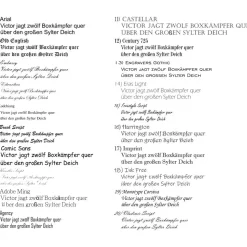 Arial
Victor jagt zwölf Boxkämpfer quer
über den großen Sylter Deich
Old English
Victor jagt zwölf Boxkämpfer quer
über den großen Sylter Deich
Victor jagt zwölf Boxkämpfer quer
über den großen Sylter Deich
Victor jagt zwölf Boxkämpfer quer
über den großen Sylter Deich
Brush Script
Victor jagt zwölf Boxkämpfer quer
über den großen Sylter Deich
Comic Sans
Victor jagt zwölf Boxkämpfer quer
über den großen Sylter Deich
Adobe Ming
Victor jagt zwölf Boxkämpfer quer
über den großen Sylter Deich
Agency
Victor jagt zwölf Boxkämpfer quer
über den großen Sylter Deich
11) CASTELLAR
VICTOR JAGT ZWÖLF BOXKÄMPFER QUER
ÜBER DEN GROßEN SYLTER DEICH
12) Century 725
Victor jagt zwölf Boxkämpfer quer
über den großen Sylter Deich
13) ENGRAVERS GOTHIC
VICTOR JAGT ZWÖLF BOXKÄMPFER QUER
ÜBER DEN GROSSEN SYLTER DEICH
14) Eras Light
Victor jagt zwölf Boxkämpfer quer
über den großen Sylter Deich
15) Freestyle Script
Victor jagt zwölf Boxkämpfer quer
über den großen Sylter Deich
16) Harrington
Victor jagt zwölf Boxkämpfer quer
über den großen Sylter Deich
17) Imprint
Victor jagt zwölf Boxkämpfer quer
über den großen Sylter Deich
18) Ink Free
Victor jagt zwölf Boxkämpfer quer
über den großen Sylter Deich
19) Monotype Corsiva
Victor jagt zwölf Boxkämpfer quer
über den großen Sylter Deich
20) Script
Victor jagt zwölf Boxkämpfer quer
über den großen Sylter Deich